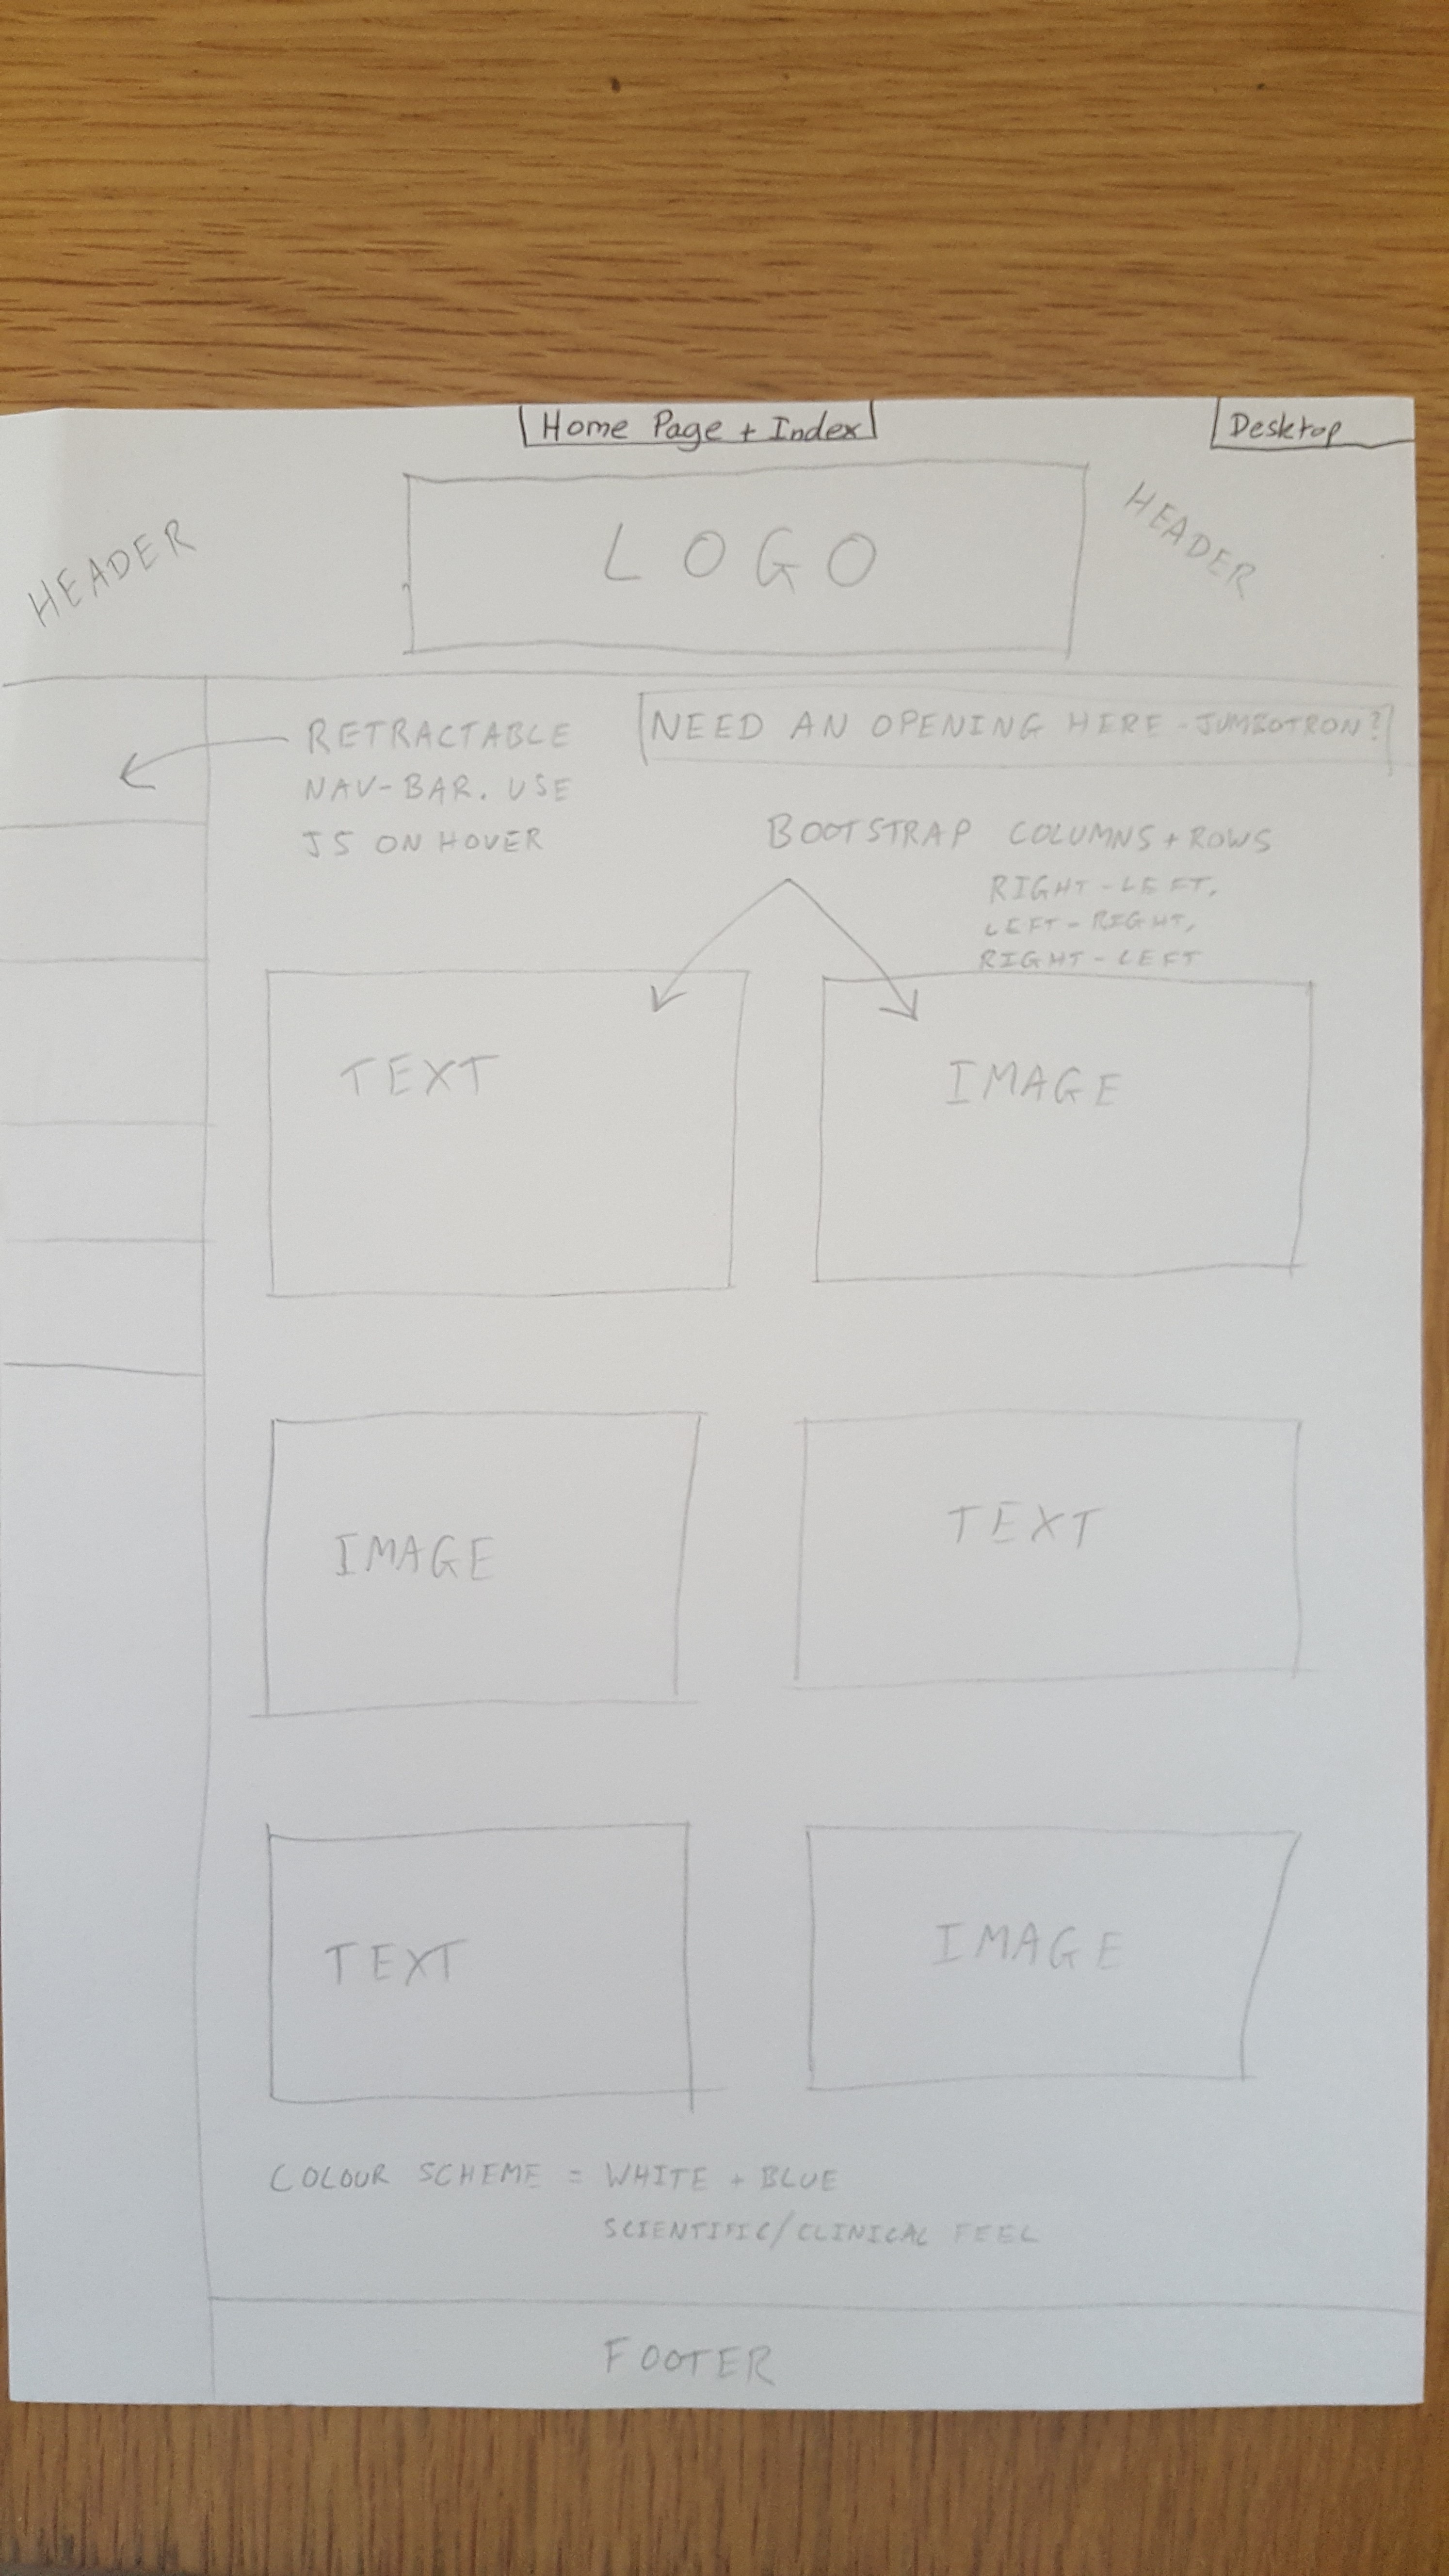 Home Page + Index
Desktop
HEADER
LOGO
HEADER
RETRACTABLE
NAV-BAR. USE
JS ON HOVER
NEED AN OPENING HERE - JUMBOTRON?
BOOTSTRAP COLUMNS + ROWS
RIGHT - LEFT,
LEFT - RIGHT,
RIGHT - LEFT
TEXT
IMAGE
IMAGE
TEXT
TEXT
IMAGE
COLOUR SCHEME = WHITE + BLUE
SCIENTIFIC/CLINICAL FEEL
FOOTER